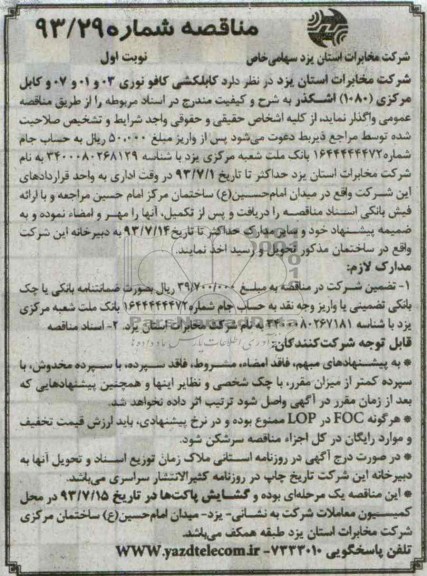 مناقصه شماره ۹۳/۲۹
شرکت مخابرات استان یزد سهامی خاص
نوبت اول
شرکت مخابرات استان یزد در نظر دارد کابلکشی کافو نوری ۰۳ و ۰۱ و ۰۷ و کابل
مرکزی (۱۰۸۰) اشکذر به شرح و کیفیت مندرج در اسناد مربوطه را از طریق مناقصه
عمومی واگذار نماید، از کلیه اشخاص حقیقی و حقوقی واجد شرایط و تشخیص صلاحیت
شده توسط مراجع ذیربط دعوت می‌شود پس از واریز مبلغ ۵۰,۰۰۰ ریال به حساب جام
شماره ۱۶۴۴۴۴۴۴۷۲ بانک ملت شعبه مرکزی یزد با شناسه ۳۴۰۰۰۸۰۲۶۸۱۲۹ به نام
شرکت مخابرات استان یزد حداکثر تا تاریخ ۹۳/۷/۱ در وقت اداری به واحد قراردادهای
این شرکت واقع در میدان امام‌حسین(ع) ساختمان مرکز امام حسین مراجعه و با ارائه
فیش بانکی اسناد مناقصه را دریافت و پس از تکمیل، آنها را مهر و امضاء نموده و به
ضمیمه پیشنهاد خود و سایر مدارک حداکثر تا تاریخ ۹۳/۷/۱۴ به دبیرخانه این شرکت
واقع در ساختمان مذکور تحویل و رسید اخذ نمایند.
مدارک لازم:
۱- تضمین شرکت در مناقصه به مبلغ ۳۹/۷۰۰/۰۰۰ ریال بصورت ضمانتنامه بانکی یا چک
بانکی تضمینی یا واریز وجه نقد به حساب جام شماره ۱۶۴۴۴۴۴۴۷۲ بانک ملت شعبه مرکزی
یزد با شناسه ۳۴۰۰۰۸۰۲۶۷۱۸۱ به نام شرکت مخابرات استان یزد. ۲- اسناد مناقصه
قابل توجه شرکت‌کنندگان:
* به پیشنهادهای مبهم، فاقد امضاء، مشروط، فاقد سپرده، با سپرده مخدوش، با
سپرده کمتر از میزان مقرر، با چک شخصی و نظایر اینها و همچنین پیشنهادهایی که
بعد از زمان مقرر در آگهی واصل شود ترتیب اثر داده نخواهد شد.
* هرگونه FOC در LOP ممنوع بوده و در نرخ پیشنهادی، باید ارزش قیمت تخفیف
و موارد رایگان در کل اجزاء مناقصه سرشکن شود.
* در صورت درج آگهی در روزنامه استانی ملاک زمان توزیع اسناد و تحویل آنها به
دبیرخانه این شرکت تاریخ چاپ در روزنامه کثیرالانتشار سراسری می‌باشد.
* این مناقصه یک مرحله‌ای بوده و گشایش پاکت‌ها در تاریخ ۹۳/۷/۱۵ در محل
کمیسیون معاملات شرکت به نشانی- یزد- میدان امام‌حسین(ع) ساختمان مرکزی
شرکت مخابرات استان یزد طبقه همکف می‌باشد.
تلفن پاسخگویی ۷۲۳۳۰۱۰- WWW.yazdtelecom.ir